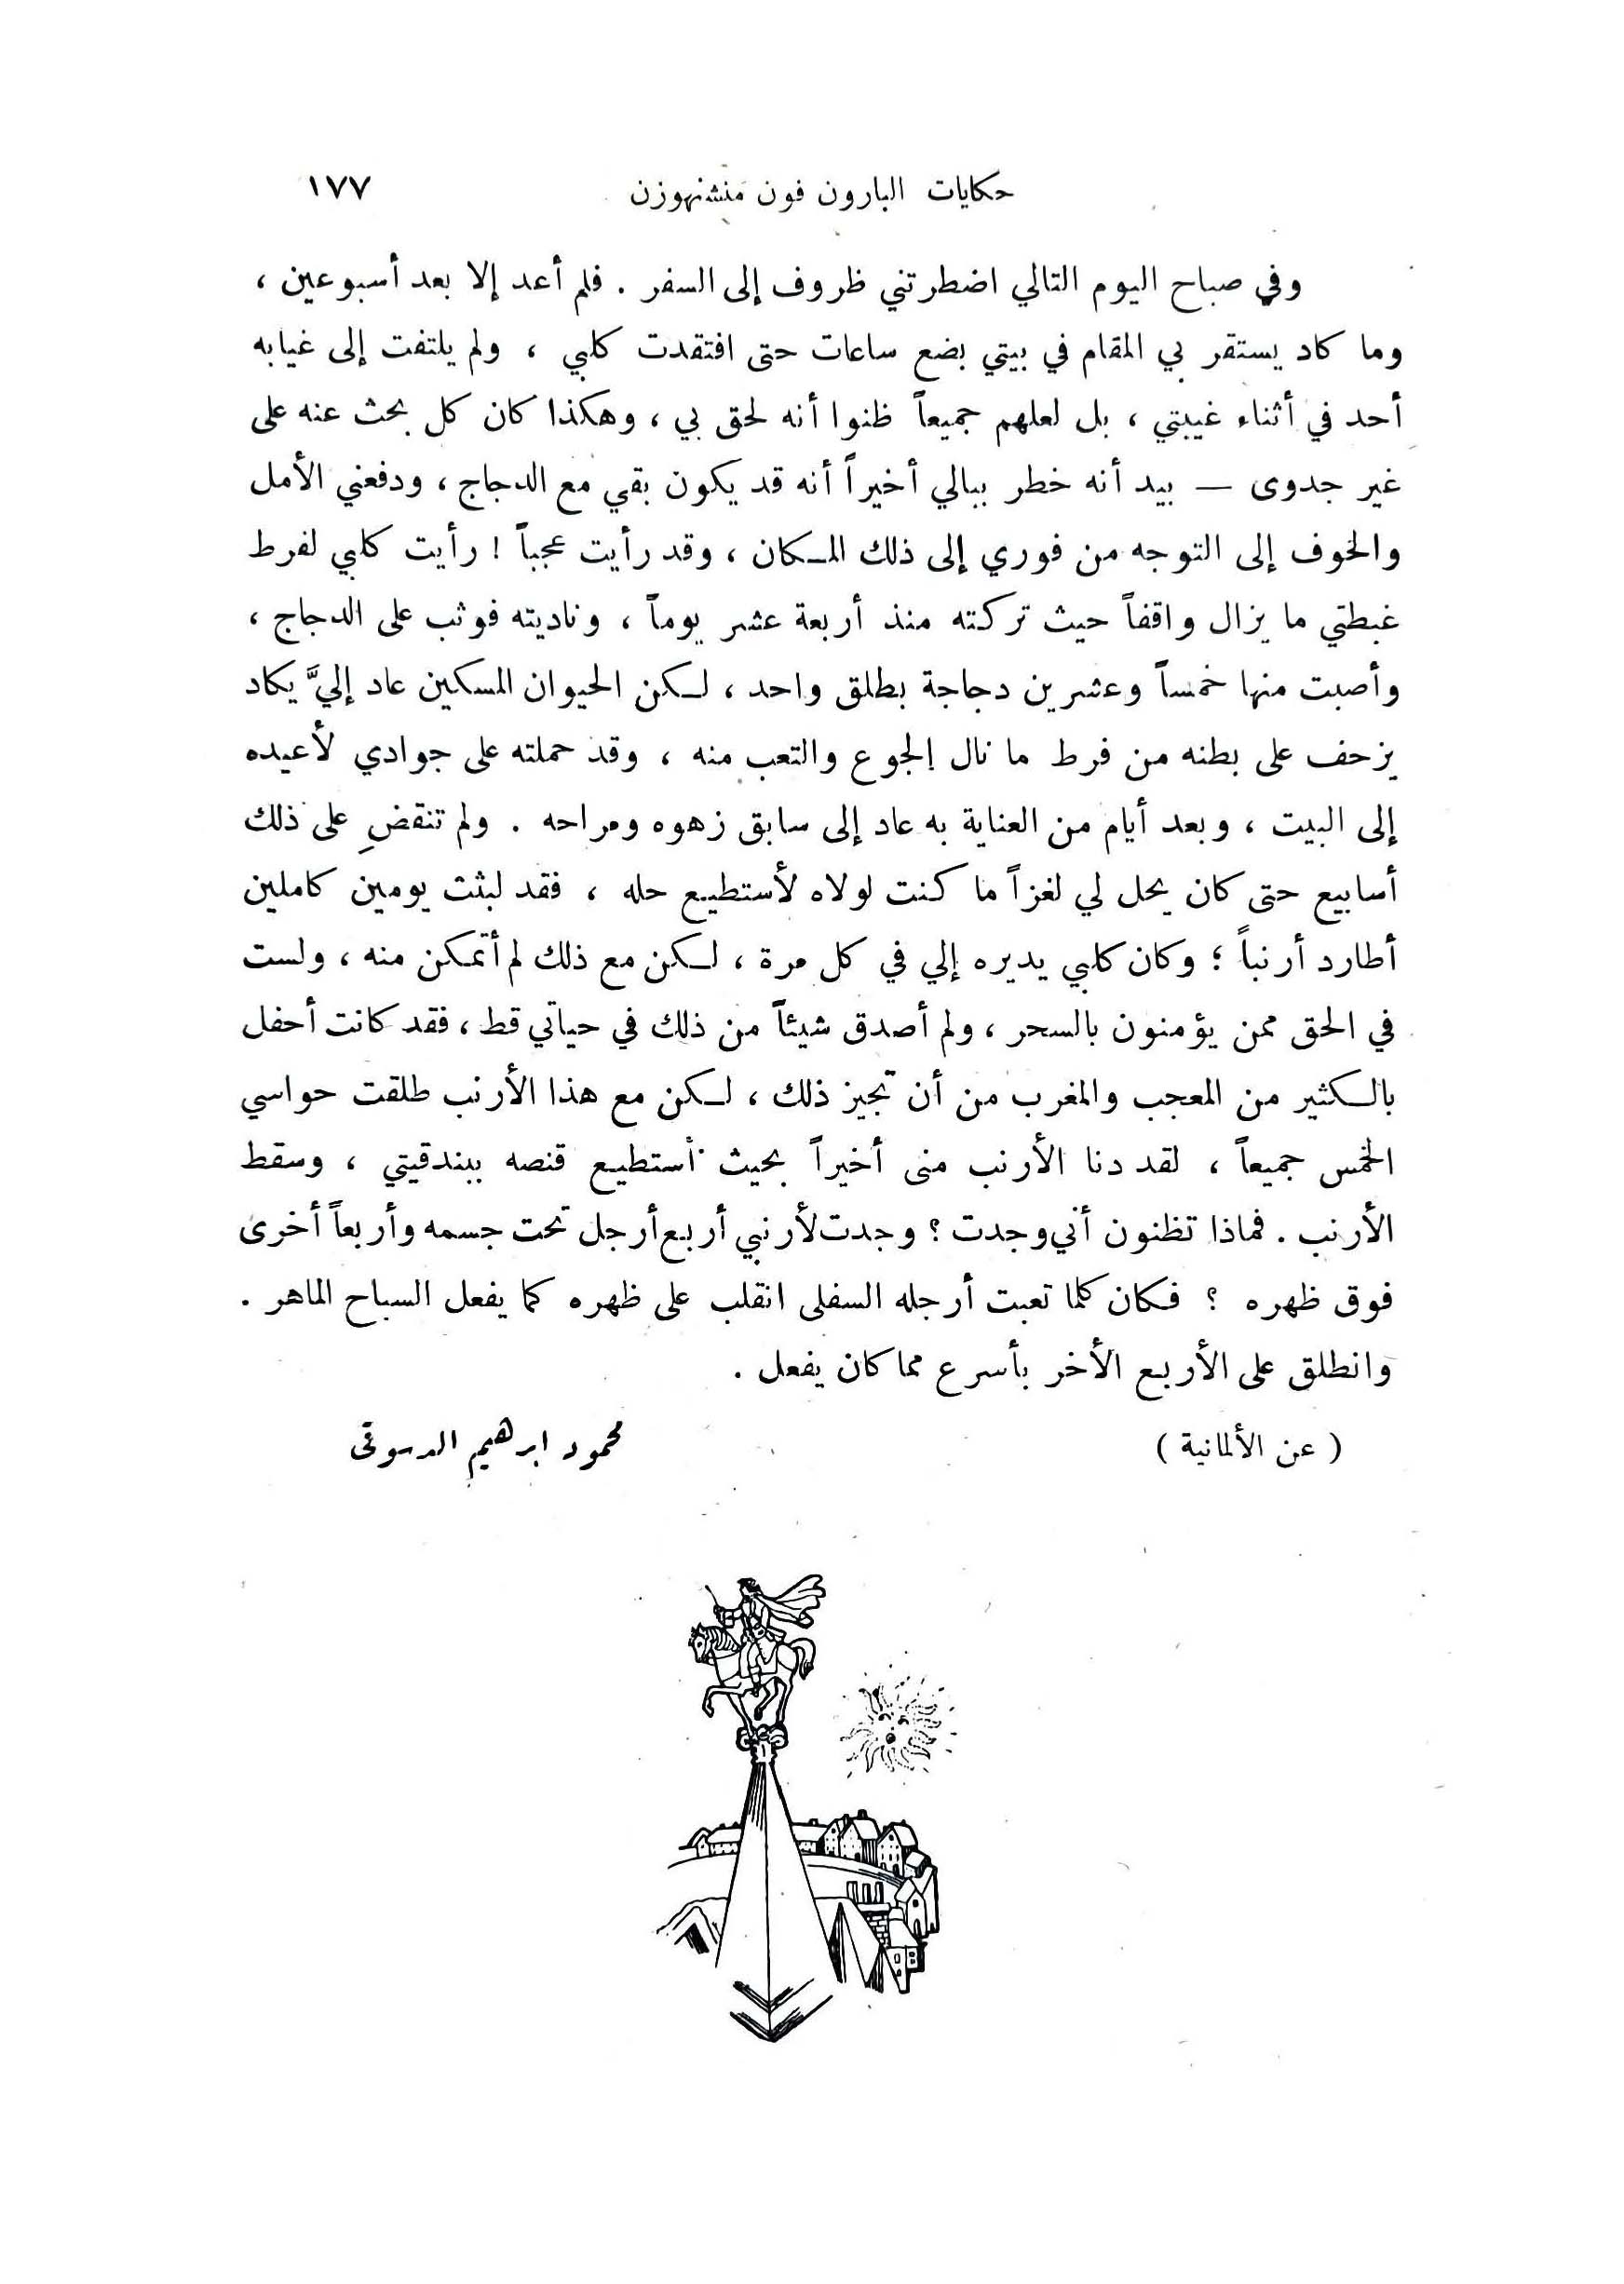 حكايات البارون فون منشنهوزن ١٧٧
وفي صباح اليوم التالي اضطرتني ظروف إلى السفر . فلم أعد إلا بعد أسبوعين ،
وما كاد يستقر بي المقام في بيتي بضع ساعات حتى افتقدت كلبي ، ولم يلتفت إلى غيابه
أحد في أثناء غيبتي ، بل لعلهم جميعاً ظنوا أنه لحق بي ، وهكذا كان كل بحث عنه على
غير جدوى — بيد أنه خطر ببالي أخيراً أنه قد يكون بقي مع الدجاج ، ودفعني الأمل
والخوف إلى التوجه من فوري إلى ذلك المكان ، وقد رأيت عجباً ! رأيت كلبي لفرط
غبطتي ما يزال واقفاً حيث تركته منذ أربعة عشر يوماً ، وناديته فوثب على الدجاج ،
وأصبت منها خمساً وعشرين دجاجة بطلق واحد ، لكن الحيوان المسكين عاد إليَّ يكاد
يزحف على بطنه من فرط ما نال الجوع والتعب منه ، وقد حملته على جوادي لأعيده
إلى البيت ، وبعد أيام من العناية به عاد إلى سابق زهوه ومراحه . ولم تنقضِ على ذلك
أسابيع حتى كان يحل لي لغزاً ما كنت لولاه لأستطيع حله ، فقد لبثت يومين كاملين
أطارد أرنباً ؛ وكان كلبي يديره إلي في كل مرة ، لكن مع ذلك لم أتمكن منه ، ولست
في الحق ممن يؤمنون بالسحر ، ولم أصدق شيئاً من ذلك في حياتي قط ، فقد كانت أحفل
بالكثير من المعجب والمغرب من أن تجيز ذلك ، لكن مع هذا الأرنب طلقت حواسي
الخمس جميعاً ، لقد دنا الأرنب منى أخيراً بحيث أستطيع قنصه ببندقيتي ، وسقط
الأرنب . فماذا تظنون أني وجدت ؟ وجدت لأرنبي أربع أرجل تحت جسمه وأربعاً أخرى
فوق ظهره ؟ فكان كلما تعبت أرجله السفلى انقلب على ظهره كما يفعل السباح الماهر .
وانطلق على الأربع الأخر بأسرع مما كان يفعل .
( عن الألمانية ) محمود ابرهيم الدسوقى